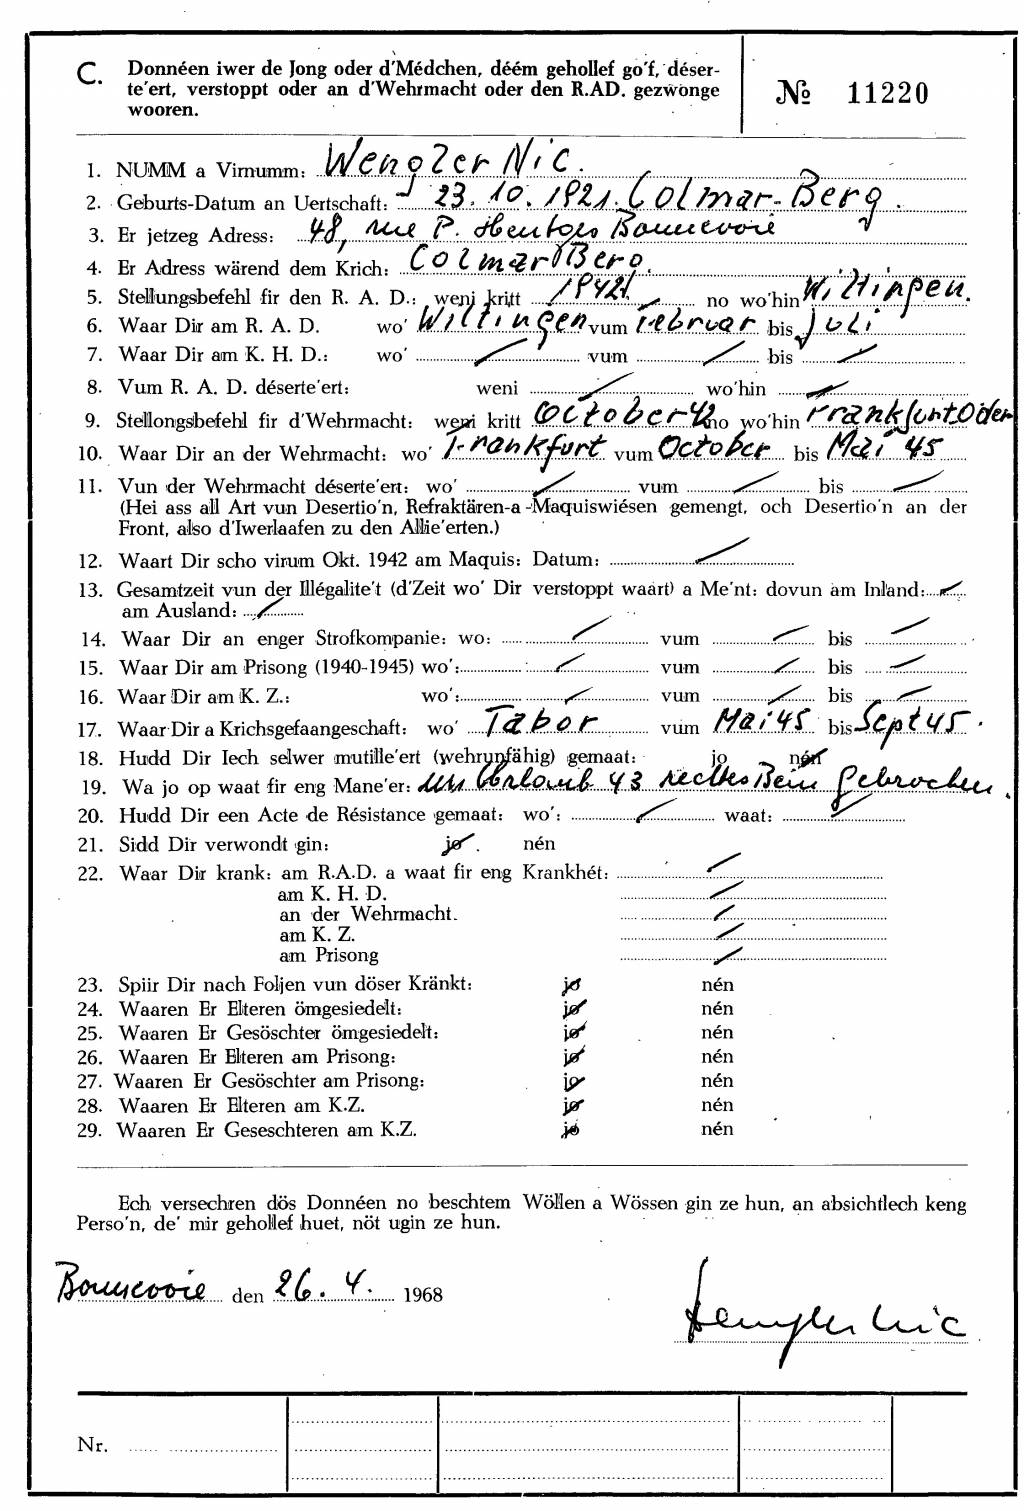 C. Donnéen iwer de Jong oder d'Médchen, déém gehollef go'f, déser-
te'ert, verstoppt oder an d'Wehrmacht oder den R.AD. gezwonge
wooren.
№ 11220
1. NUMM a Virnumm: Wengler Nic.
2. Geburts-Datum an Uertschaft: 23.10.1921. Colmar-Berg.
3. Er jetzeg Adress: 48, rue P. Hentges Bonnevoie
4. Er Adress wärend dem Krich: Colmar Berg.
5. Stellungsbefehl fir den R. A. D.: weni kritt 1942 no wo'hin Wiltingen.
6. Waar Dir am R. A. D. wo' Wiltingen vum Februar bis Juli
7. Waar Dir am K. H. D.: wo' vum bis
8. Vum R. A. D. déserte'ert: weni wo'hin
9. Stellongsbefehl fir d'Wehrmacht: weni kritt October 42 no wo'hin Frankfurt Oder
10. Waar Dir an der Wehrmacht: wo' Frankfurt vum October bis Mai 45
11. Vun der Wehrmacht déserte'ert: wo' vum bis
(Hei ass all Art vun Desertio'n, Refraktären-a-Maquiswiésen gemengt, och Desertio'n an der
Front, also d'Iwerlaafen zu den Allie'erten.)
12. Waart Dir scho virum Okt. 1942 am Maquis: Datum:
13. Gesamtzeit vun der Illégalite't (d'Zeit wo' Dir verstoppt waart) a Me'nt: dovun am Inland:
am Ausland:
14. Waar Dir an enger Strofkompanie: wo: vum bis
15. Waar Dir am Prisong (1940-1945) wo': vum bis
16. Waar Dir am K. Z.: wo': vum bis
17. Waar Dir a Krichsgefaangeschaft: wo' Tabor vum Mai 45 bis Sept 45.
18. Hudd Dir Iech selwer mutille'ert (wehrunfähig) gemaat: jo nén
19. Wa jo op waat fir eng Mane'er: Urlaub 43 rechtes Bein gebrochen.
20. Hudd Dir een Acte de Résistance gemaat: wo': waat:
21. Sidd Dir verwondt gin: jo nén
22. Waar Dir krank: am R.A.D. a waat fir eng Krankhét:
am K. H. D.
an der Wehrmacht.
am K. Z.
am Prisong
23. Spiir Dir nach Foljen vun döser Kränkt: jo nén
24. Waaren Er Elteren ömgesiedelt: jo nén
25. Waaren Er Gesöschter ömgesiedelt: jo nén
26. Waaren Er Elteren am Prisong: jo nén
27. Waaren Er Gesöschter am Prisong: jo nén
28. Waaren Er Elteren am K.Z. jo nén
29. Waaren Er Geseschteren am K.Z. jo nén
Ech versechren dös Donnéen no beschtem Wöllen a Wössen gin ze hun, an absichtlech keng
Perso'n, de' mir gehollef huet, nöt ugin ze hun.
Bonnevoie den 26. 4. 1968
Wengler Nic
Nr.